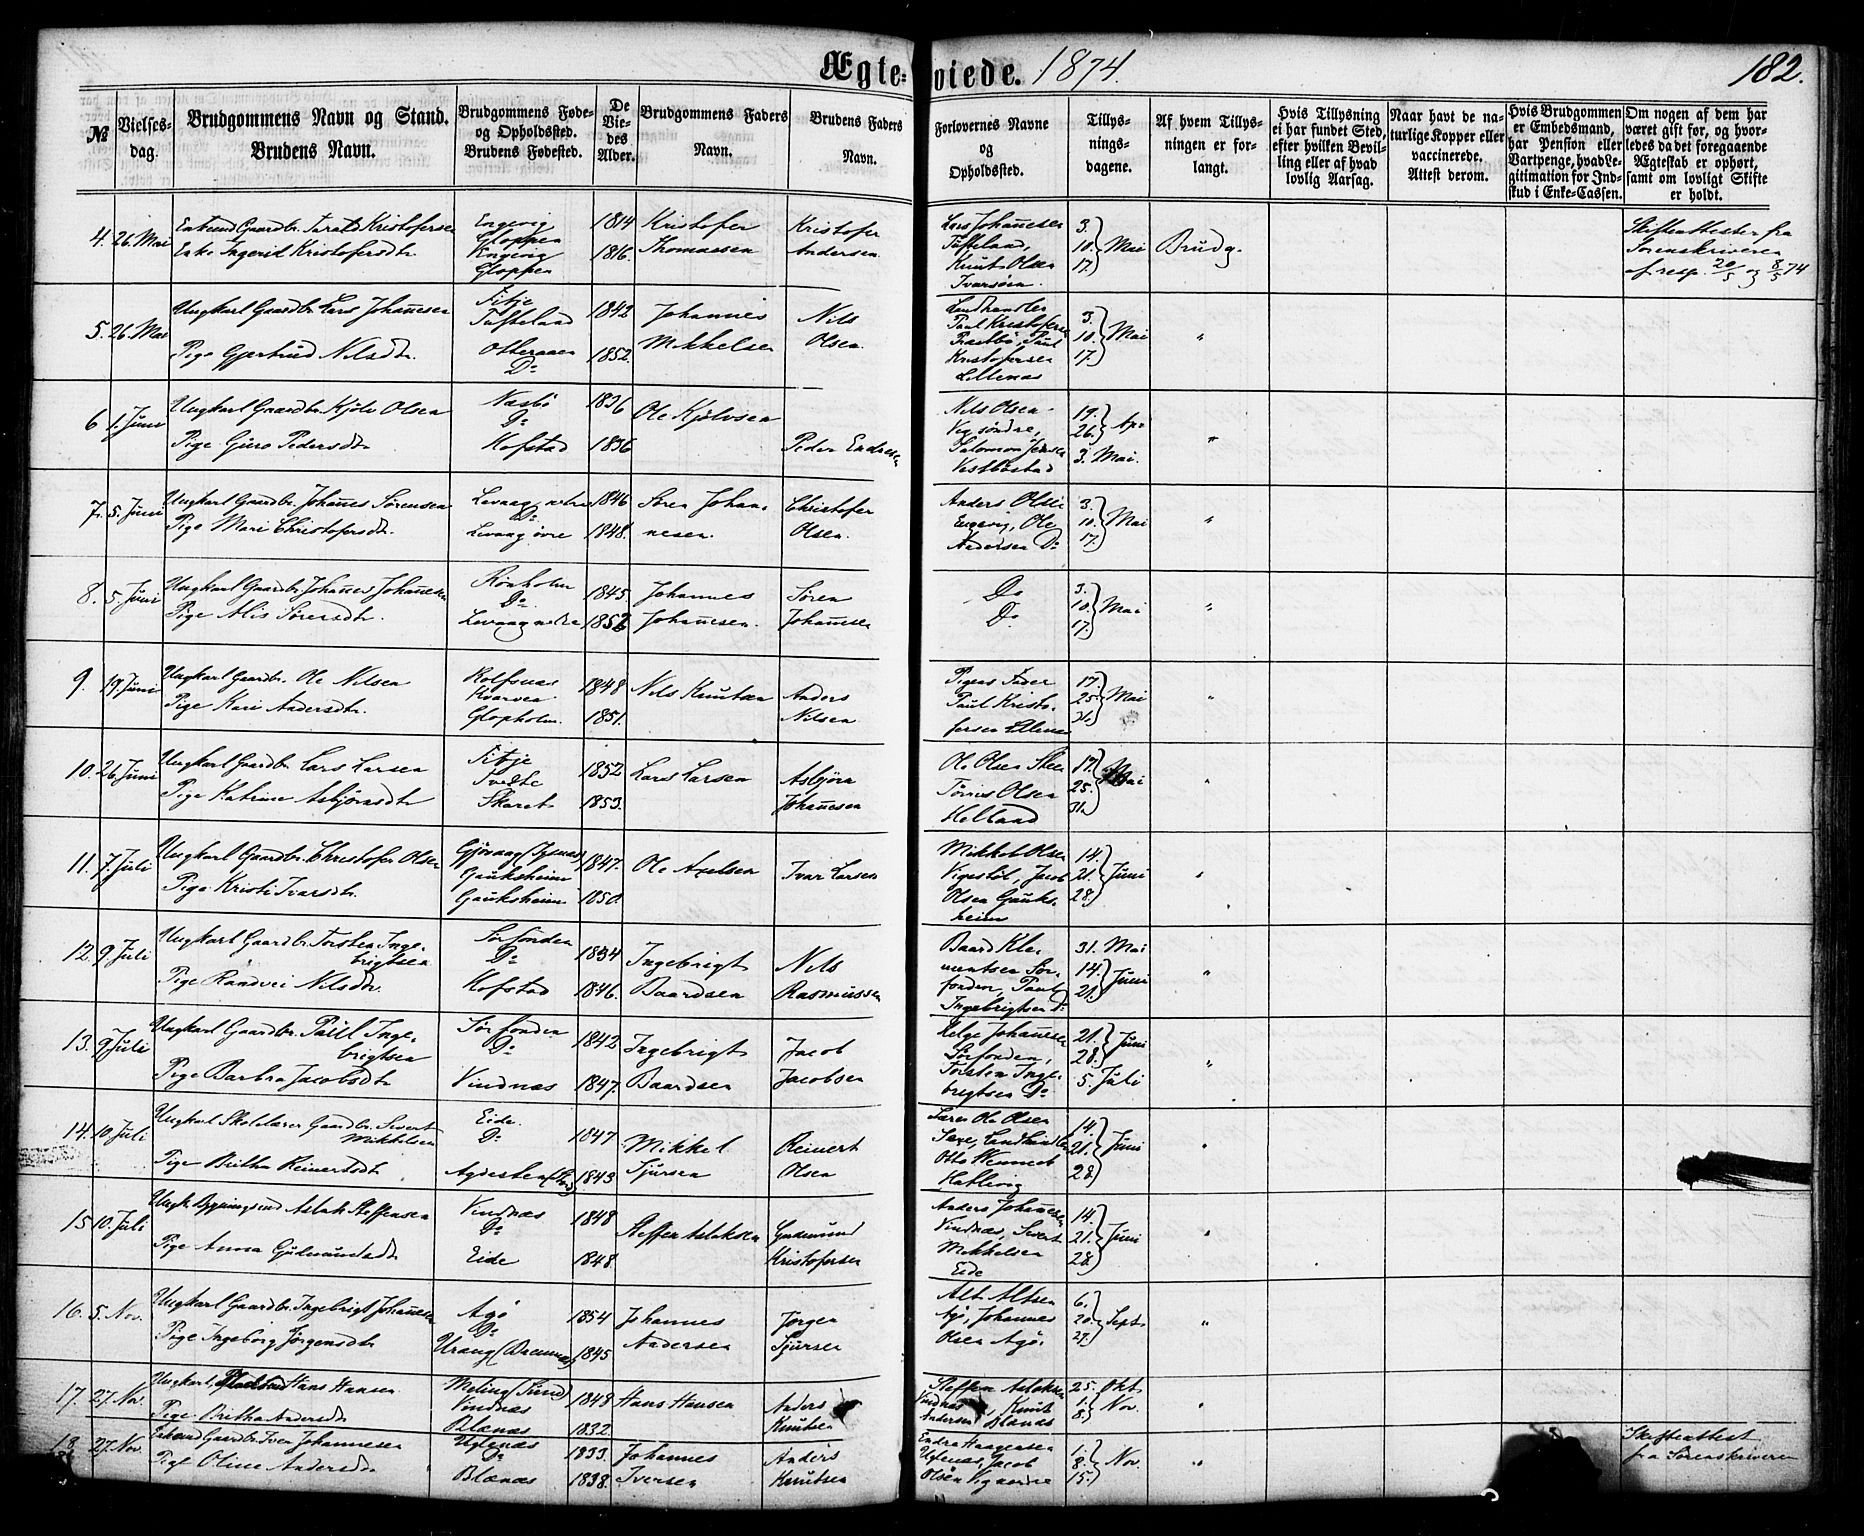 Ægte-viede. 1874.
182.
№
Vielses-dag.
Brudgommens Navn og Stand.
Brudens Navn.
Brudgommens Føde- og Opholdssted.
Brudens Fødested.
De Viedes Alder.
Brudgommens Faders Navn.
Brudens Faders Navn.
Forlovernes Navne og Opholdssted.
Tillysningsdagene.
Af hvem Tillysningen er forlangt.
Hvis Tillysning ei har fundet Sted, efter hvilken Bevilling eller af hvad lovlig Aarsag.
Naar havt de naturlige Kopper eller vaccinerede. Attest derom.
Hvis Brudgommen er Embedsmand, har Pension eller Vartpenge, hvad Legitimation for Indskud i Enke-Cassen.
Om nogen af dem har været gift før, og hvorledes da det foregaaende Ægteskab er ophørt, samt om lovligt Skifte er holdt.
4. 26. Mai Enkemd Gaardbr. Kristofersen Engevig 1814 Kristofer Kristofer Lars Johannesen 3. Skifteattester fra
Enke Ingerid Kristofersdtr Gloppen Engevig Gloppen 1816. Thomassen Andersen Tufteland, Knut Olsen Ivarsøen. 10. 17. Mai Brudg. Sorenskriveren af resp. 20/5 og 8/5 74
5. 26. Mai Ungkarl Gaardbr Lars Johannesen Fitje Tuftelaad 1842 Johannes Nils Landhandler Paul Kristofersen 3.
Pige Gjertrud Nilsdtr. Otteraaen Do 1852. Mikkelsen Olsen Paul Kristofersen Lillenæs 10. 17. Mai "
6 1. Juni Ungkarl Gaardbr Kjølv Olsen Næsbø Do 1836 Ole Kjølvsen Nils Olsen 19.
Pige Guro Pedersdtr Kofstad 1836 Peder Endresen Salomon Vestbøstad 26. Apr 3. Mai. "
7. 5. Juni Ungkarl Gaardbr Johannes Sørensen Levaag nedre Do 1846 Søren Johan- Christofer Anders Olsen 3.
Pige Mari Christofersdtr. Levaag øvre 1848. nesen. Olsen. Engevig, Ole Andersen Do 10. 17. Mai "
8. 5 Juni Ungkarl Gaardbr Johannes Johannesen Rønholm Do 1845. Johannes Søren Do 3.
Pige Alis Sørensdtr. Levaag nedre Johannesen. Johannesen Do 10. 17. Mai "
9. 19. Juni Ungkarl Gaardbr. Ole Nilsen Rolfsnæs Kvarven 1848 Nils Knutsen Anders Pigens Fader 17.
Pige Kari Andersdtr. Glopholm. 1851. Nilsen Paul Kristofersen Lillenæs 25. 31. Mai "
10. 26. Juni Ungkarl Gaardbr Lars Larsen Fitje Tvedte 1852 Lars Larsen Asbjørn Ole Olsen Steen 17.
Pige Katrine Asbjørnsdtr Skaret 1853. Johannesen Tørris Olsen Helland 25. 31. Mai "
11. 7. Juli Ungkarl Gaardbr. Christofer Olsen Gjøvaag Gauksheim 1847. Ole Axelsen Ivar Larsen Mikkel Olsen 14.
Pige Kristi Ivarsdtr. Gauksheim 1850. Vigestøl, Jacob Olsen Gauksheim 21. 28. Juni "
12. 9. Juli Ungkarl Gaardbr Torsten Ingebrigtsen Sørfonden Do 1834 Ingebrigt Nils Baard Klementsen 31. Mai
Pige Randvei Nilsdtr. Kofstad 1846. Baardsen Rasmussen Sørfonden, Paul Ingebrigtsen Do 14. 21. Juni "
13. 9 Juli Ungkarl Gaardbr. Paul Ingebrigtsen Sørfonden Do 1842 Ingebrigt Jacob Helge Johannesen 21.
Pige Barbra Jacobsdtr Vindnæs 1847. Baardsen Jacobsen Sørfonden, Torsten Ingebrigtsen Do 28. Juni 5. Juli "
14. 10. Juli Ungkarl Skolelærer Gaardbr. Sivert Mikkelsen Eide. Do 1847 Mikkel Reinert Lærer Ole Olsen 14.
Pige Britha Reinertsdtr Agdesten 1843 Sjursen Olsen Saxe, Landhandler Otto Wenneck Hatlevig 21. 28. Juni "
15 10. Juli Ungk. Aslak Steffensen Vindnæs Do 1848 Steffen Aslaksen Gudmund Anders Johannesen 14.
Pige Anna Gudmundsdtr Eide 1848 Kristofersen Vindnæs, Sivert Mikkelsen Eide 21. 28. Juni "
16. 5. Nov. Ungkarl Gaardbr. Ingebrigt Johannesen Agø Do 1854 Johannes Jørgen 6.
Pige Ingeborg Jørgensdtr Urang 1845 Andersen Sjursen Agø, Johannes Olsen Agø. 20. 27. Sept. "
17. 27. Nov. Ungkarl Hans Hansen Meling (Sund) Vindnæs 1848 Hans Hansen Anders Steffen Aslaksen 25. Okt.
Pige Britha Andersdtr Blænæs 1832. Knutsen Vindnæs, Knut Andersen Blænæs 1. 8. Nov. "
18. 27. Nov. Enkemd Gaardbr. Iver Johannesen Uglenæs Do 1833. Johannes Anders Endre Haagensen 1. Skifteattest
Pige Oline Andersdtr Blænæs 1838. Iversen Knutsen Uglenæs, Jacob Olsen 8. 15. Nov. " fra Sorenskriveren